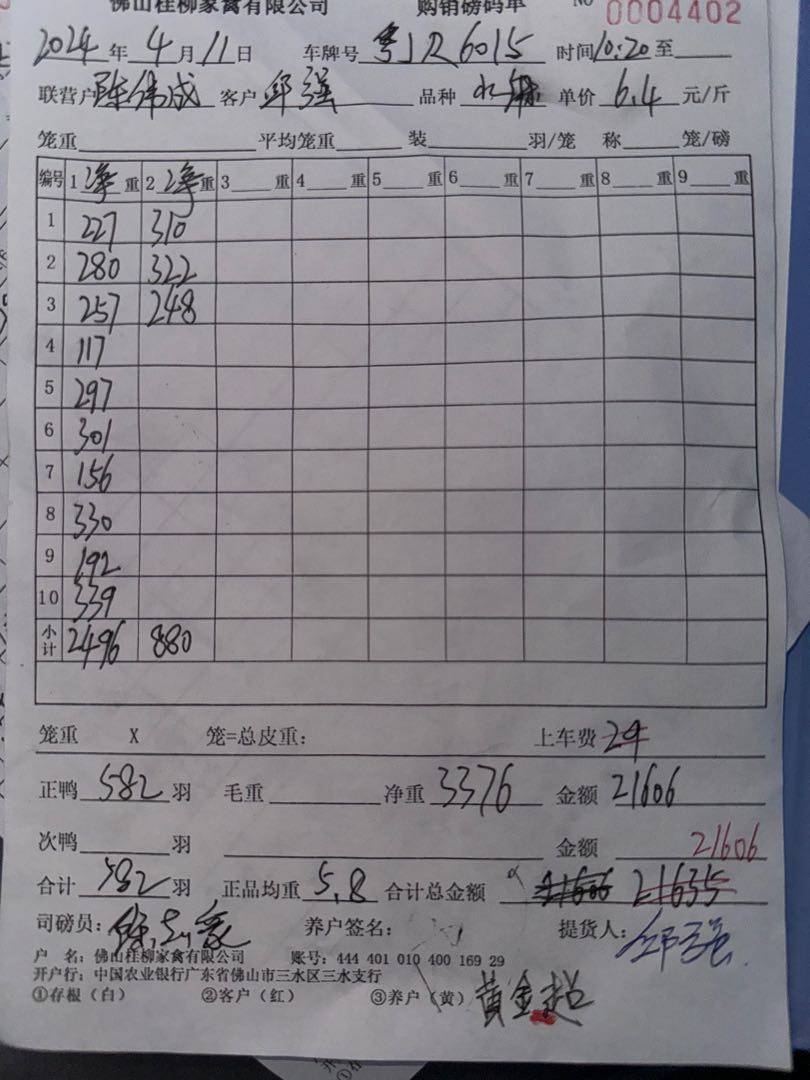 佛山桂柳家禽有限公司 购销磅码单 No 0004402
2024年4月11日 车牌号 粤JR6015 时间10:20至
联营户陈伟成 客户邱强 品种 单价6.4元/斤
笼重 平均笼重 装 羽/笼 称 笼/磅
编号 1净重 2净重 3 重 4 重 5 重 6 重 7 重 8 重 9 重
1 227 310
2 280 322
3 257 248
4 117
5 297
6 301
7 156
8 330
9 192
10 339
小计 2496 880
笼重 X 笼=总皮重: 上车费 29
正鸭582羽 毛重 净重3376 金额21606
次鸭 羽 金额 21606
合计582羽 正品均重5.8 合计总金额 21606 21635
司磅员: 养户签名: 提货人:邱强
户 名:佛山桂柳家禽有限公司 账号:444 401 010 400 169 29
开户行:中国农业银行广东省佛山市三水区三水支行
①存根(白) ②客户(红) ③养户(黄) 黄金超